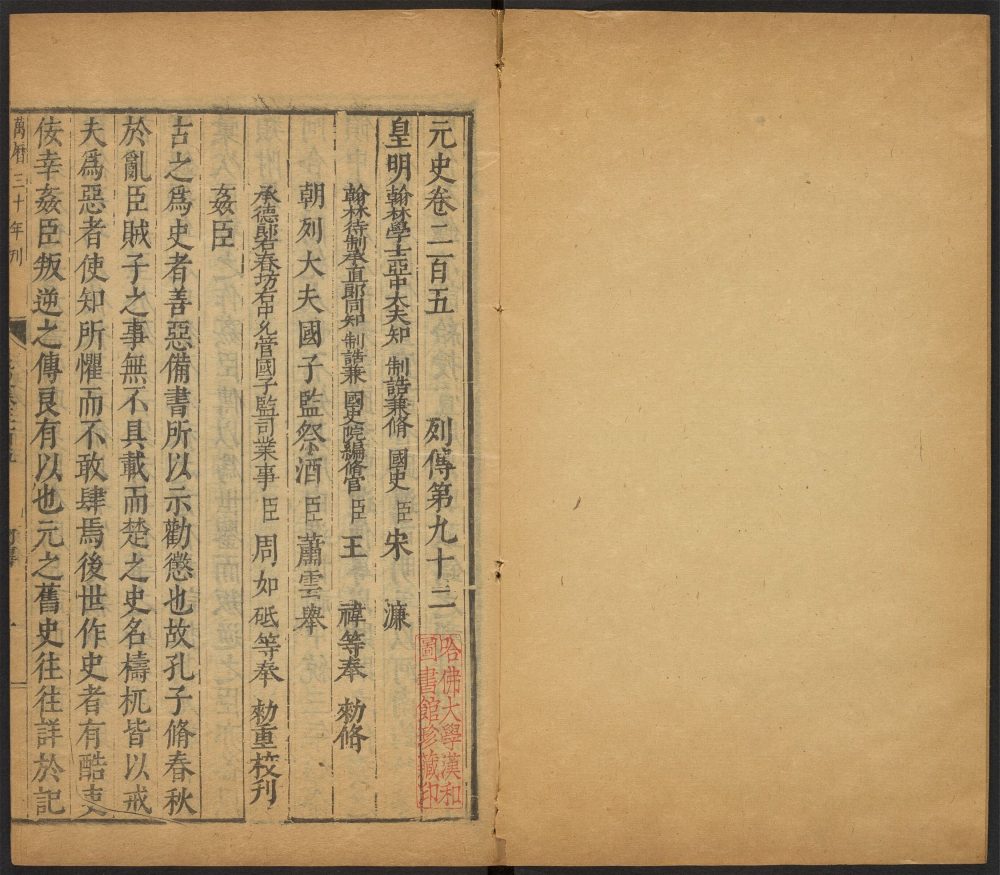 元史卷二百五 列傳第九十二
皇明翰林學士亞中大夫知 制誥兼脩 國史 臣宋 濂
翰林待制承直郎同知 制誥兼 國史院編脩官 臣王 禕等奉 勅脩
朝列大夫國子監祭酒臣蕭雲舉
承德郎右春坊右中允管國子監司業事臣周如砥等奉 勅重校刊
姦臣
古之爲史者善惡備書所以示勸懲也故孔子脩春秋
於亂臣賊子之事無不具載而楚之史名檮杌皆以戒
夫爲惡者使知所懼而不敢肆焉後世作史者有酷吏
佞幸姦臣叛逆之傳良有以也元之舊史往往詳於記
萬曆三十年刊
哈佛大學漢和
圖書館珍藏印